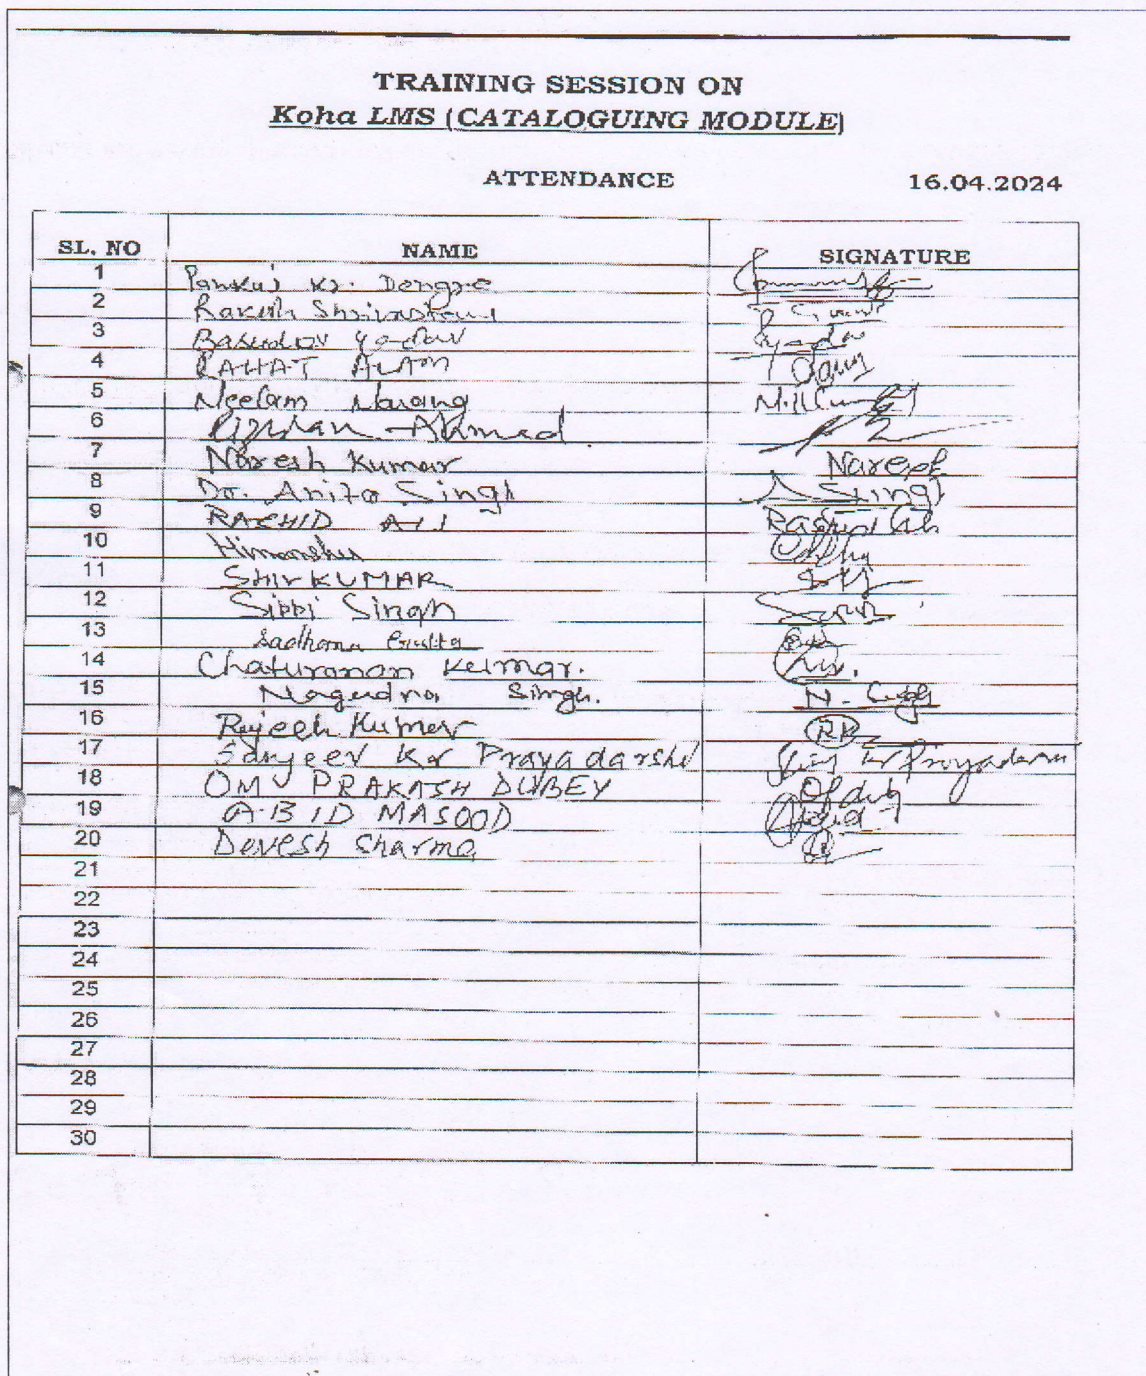 TRAINING SESSION ON
Koha LMS (CATALOGUING MODULE)
ATTENDANCE 16.04.2024
SL. NO NAME SIGNATURE
1 Pankaj Kr. Dongre
2 Rakesh Shrivastava
3 Basudev Yadav Byadav
4 RAHAT ALAM
5 Neelam Narang
6 Rizwan Ahmad
7 Naresh Kumar Naresh
8 Dr. Anita Singh A Singh
9 RASHID ALI Rashid Ali
10 Himanshu
11 SHIV KUMAR
12 Sippi Singh
13 Sadhana Gupta
14 Chaturanan Kumar.
15 Nagendra Singh. N. Singh
16 Rajesh Kumar RK
17 Sanjeev Kr Prayadarshi Priyadarshi
18 OM PRAKASH DUBEY
19 ABID MASOOD Abid
20 Devesh Sharma
21
22
23
24
25
26
27
28
29
30